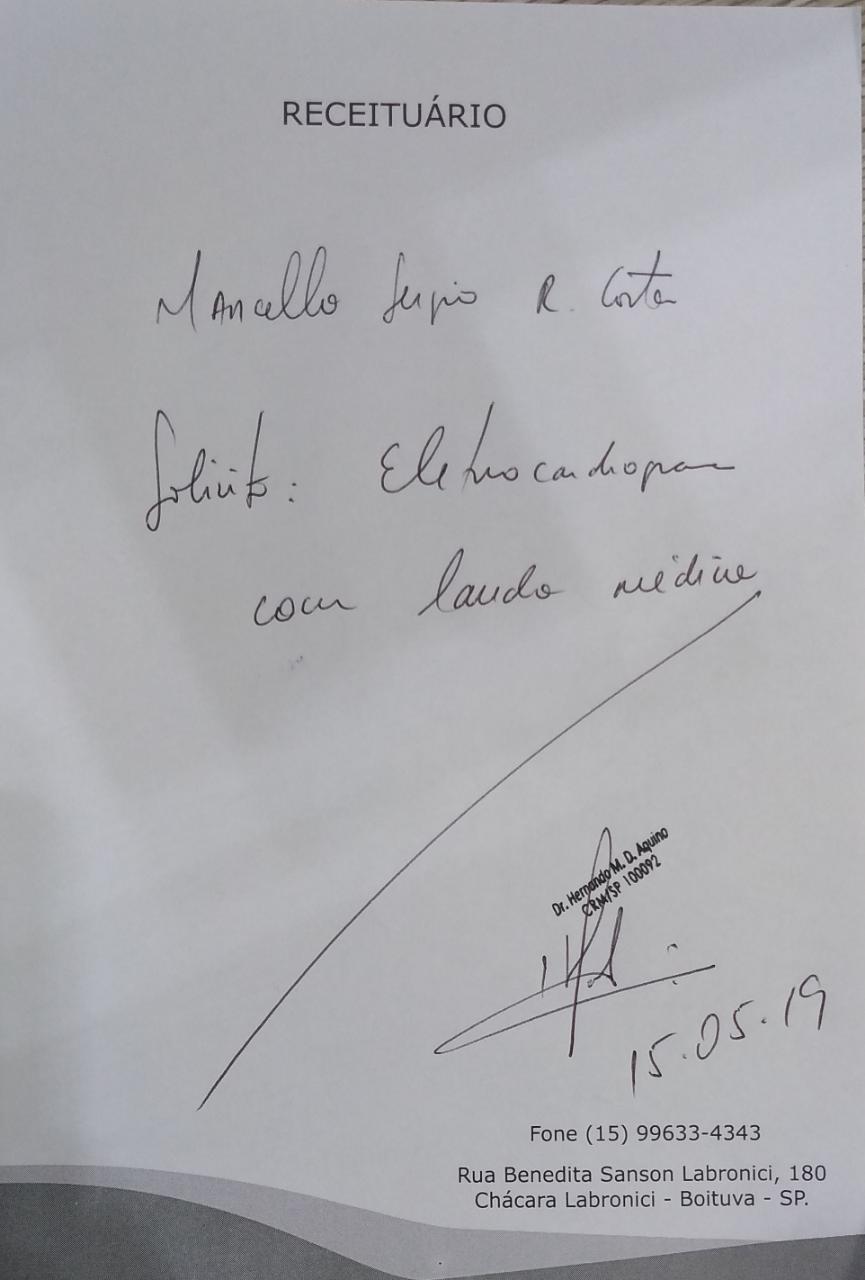 RECEITUÁRIO
Marcello Sergio R. Costa
Solicito: Eletrocardiograma
com laudo médico
Dr. Hernando M. D. Aquino
CRM/SP 100092
15.05.19
Fone (15) 99633-4343
Rua Benedita Sanson Labronici, 180
Chácara Labronici - Boituva - SP.